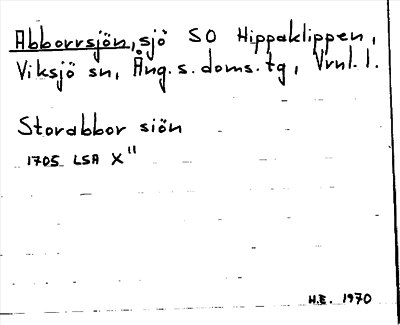 Abborrsjön, sjö SO Hippaklippen,
Viksjö sn, Ång. s. doms. tg, Vrnl. l.
Storabbor siön
1705 LSA X"
H.E. 1970